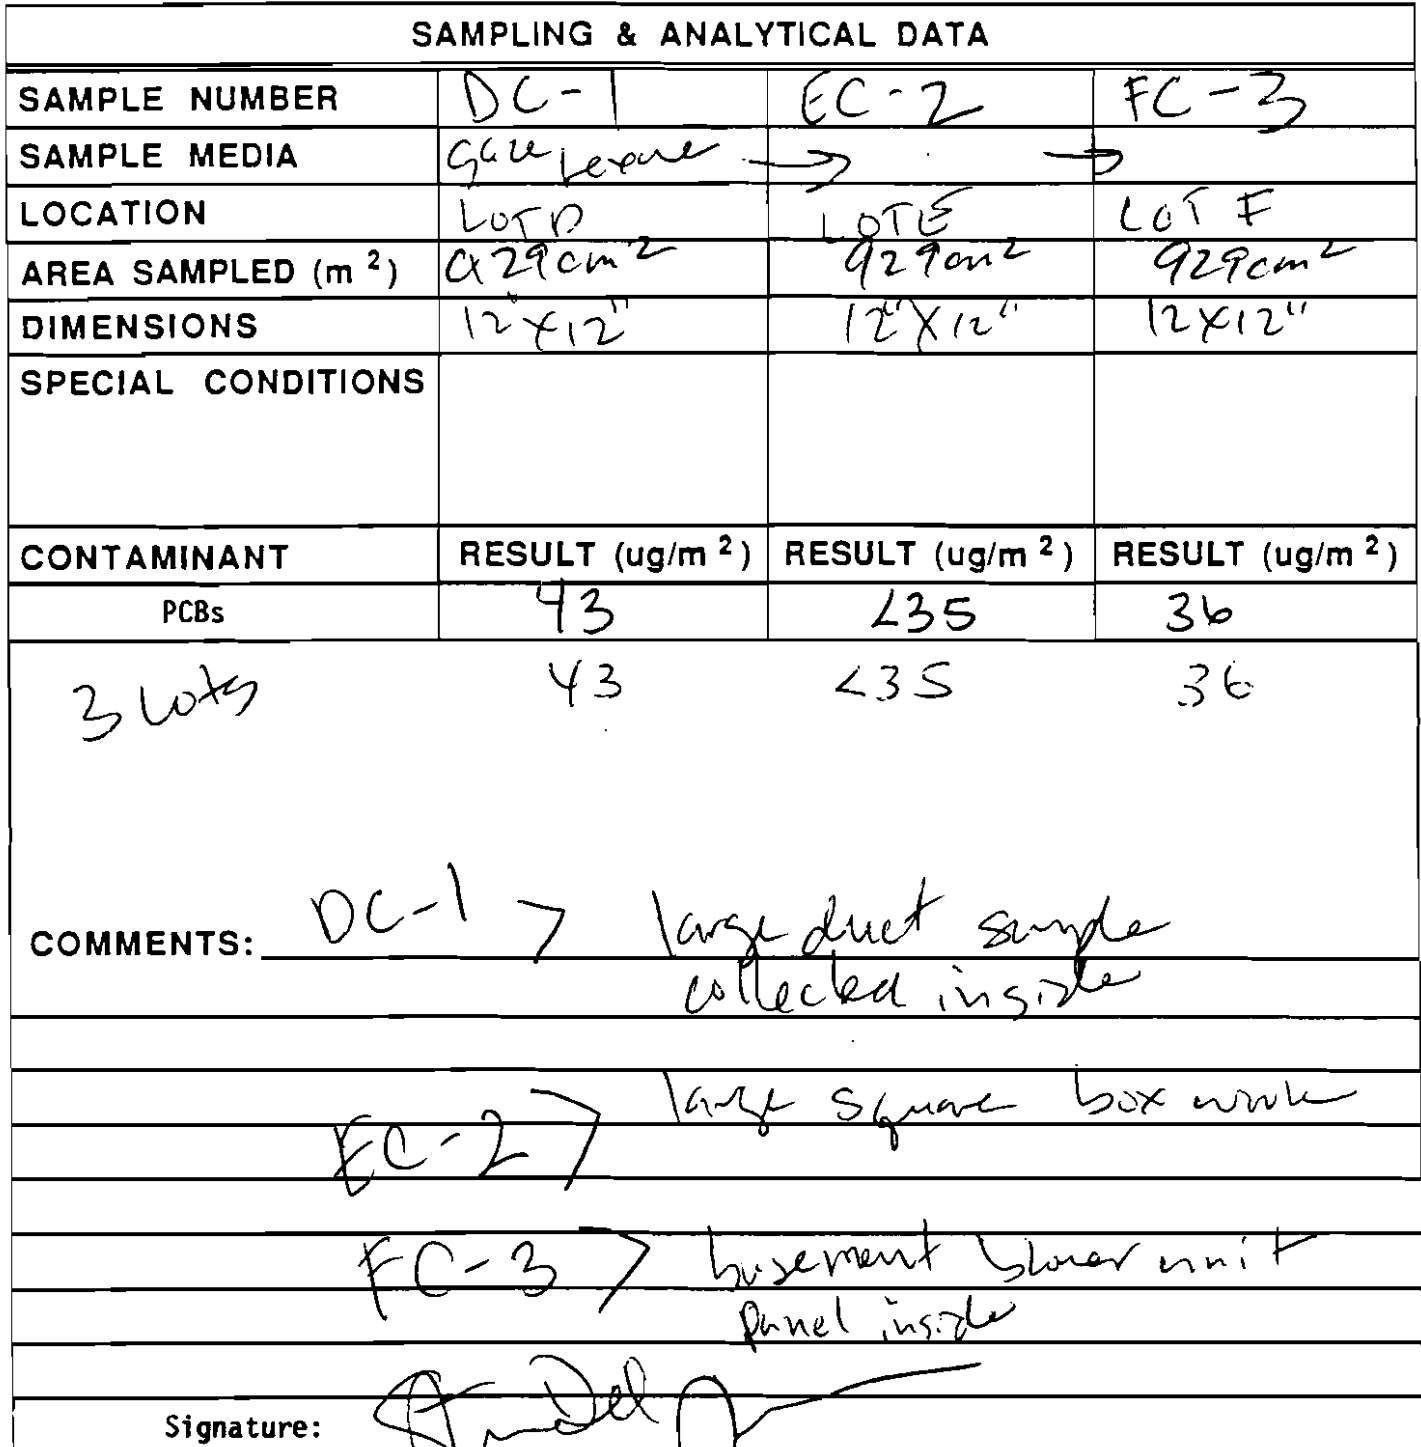 SAMPLING & ANALYTICAL DATA
SAMPLE NUMBER DC-1 EC-2 FC-3
SAMPLE MEDIA Gauze hexane → →
LOCATION LOT D LOT E LOT F
AREA SAMPLED (m ²) 929cm² 929cm² 929cm²
DIMENSIONS 12"x12" 12"X12" 12x12"
SPECIAL CONDITIONS
CONTAMINANT RESULT (ug/m ²) RESULT (ug/m ²) RESULT (ug/m ²)
PCBs 43 <35 36
3 Lots 43 <35 36
COMMENTS: DC-1 > large duct sample
collected inside
EC-2 > large square box
FC-3 > basement blower unit
panel inside
Signature: